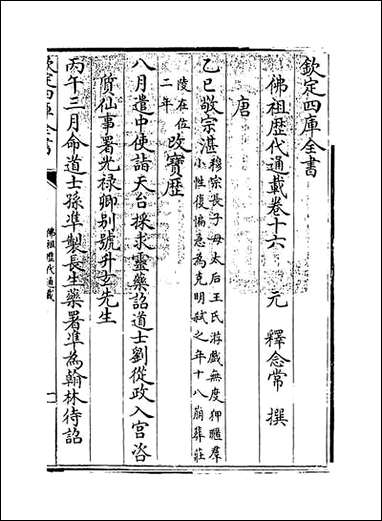 欽定四庫全書
佛祖歴代通載卷十六 元 釋念常 撰
唐
乙巳敬宗湛 穆宗長子母太后王氏游戲無度狎暱羣
小性復褊急為克明弑之年十八崩葬莊
陵在位
二年 改寶歴
八月遣中使詣天台採求靈藥詔道士劉從政入宫咨
質仙事署光禄卿别號升玄先生
丙午三月命道士孫準製長生藥署準為翰林待詔
欽定四庫全書
佛祖歴代通載
一